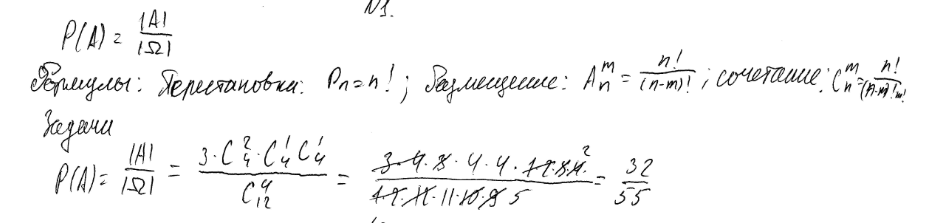 N1.
P(A) = |A| / |Ω|
Формулы: Перестановка: Pn = n! ; Размещение: A_n^m = n! / (n-m)! ; сочетание: C_n^m = n! / (n-m)! m!
Задачи
P(A) = |A| / |Ω| = 3·C_4^2·C_4^1·C_4^1 / C_12^4 = = 32 / 55